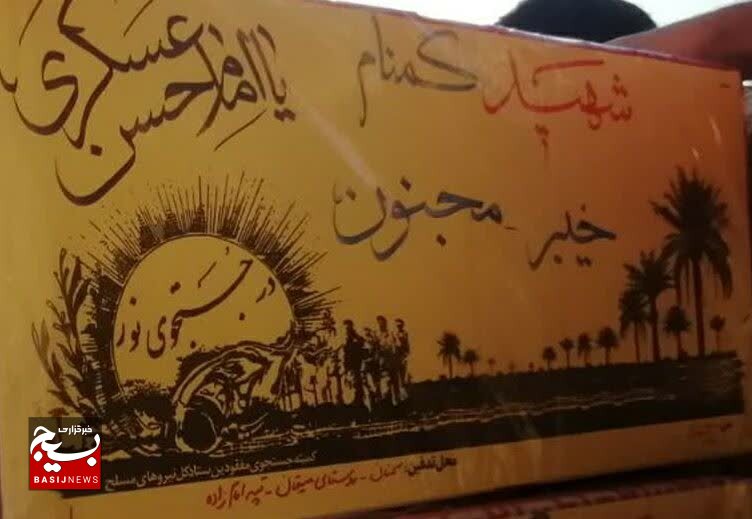 شهید گمنام
یا امام حسن عسکری
خیبر - مجنون
در جستجوی نور
کمیته جستجوی مفقودین ستاد کل نیروهای مسلح
محل تدفین: سمنان - روستای میقان - تپه امام زاده
خبرگزاری
بسیج
BASIJNEWS